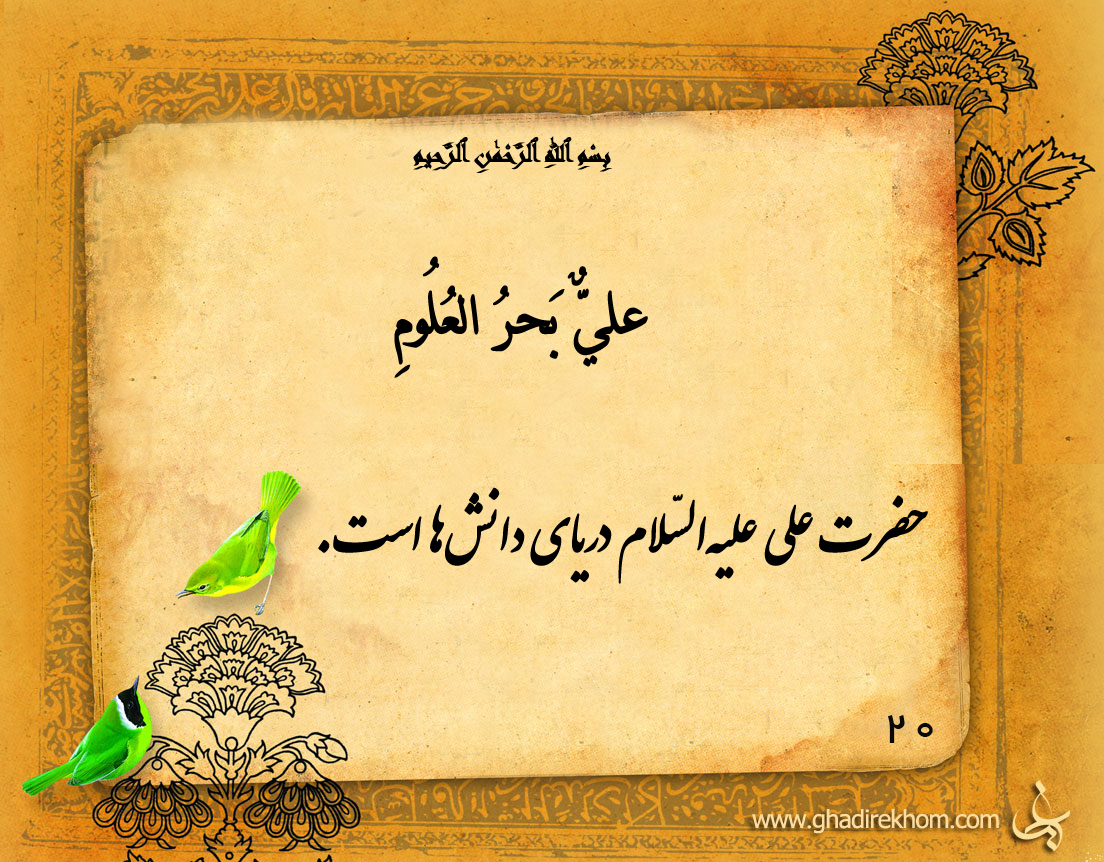 بِسْمِ ٱللَّهِ ٱلرَّحْمَٰنِ ٱلرَّحِيمِ
عليٌّ بَحرُ العُلُومِ
حضرت علی علیه‌السّلام دریای دانش‌ها است.
۲۰
www.ghadirekhom.com